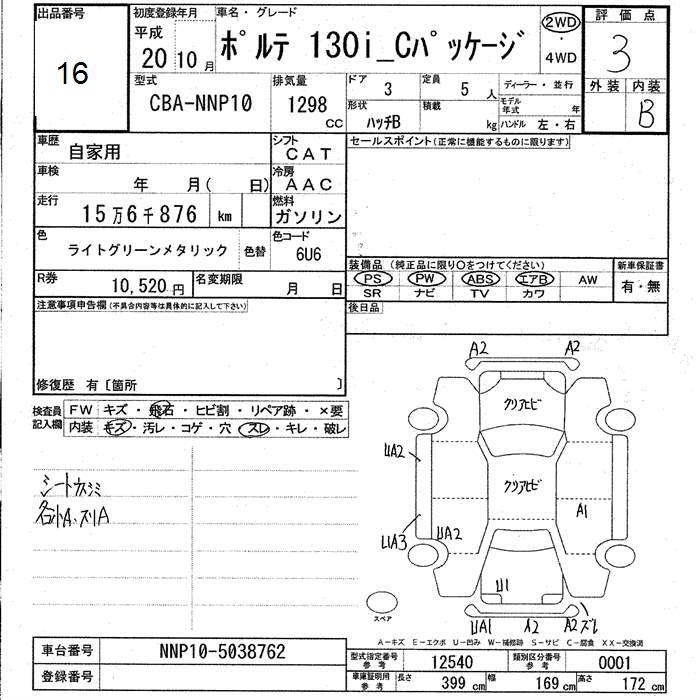 出品番号
16
初度登録年月
平成
20 10 月
車名・グレード
ポルテ 130i_Cパッケージ
2WD
・
4WD
評価点
3
外装 内装
B
型式
CBA-NNP10
排気量
1298
CC
ドア
3
定員
5 人
形状
ハッチB
積載
kg
ディーラー・並行
モデル年式 年
ハンドル 左・右
車歴
自家用
シフト
CAT
車検
年 月( 日)
冷房
AAC
走行
15万6千876 km
燃料
ガソリン
色
ライトグリーンメタリック 色替
色コード
6U6
R券
10,520 円
名変期限
月 日
セールスポイント(正常に機能するものに限ります)
装備品 (純正品に限り○をつけてください)
PS PW ABS エアB AW
SR ナビ TV カワ
新車保証書
有・無
後日品
注意事項申告欄(不具合内容等は具体的に記入して下さい)
修復歴 有〔箇所 〕
検査員
記入欄
FW キズ・飛石・ヒビ割・リペア跡・×要
内装 キズ・汚レ・コゲ・穴・スレ・キレ・破レ
シートウスシミ
各小A・ズリA
A2 A2
クリアハヒビ
UA2
クリアハヒビ
A1
UA3 UA2
U1
UA1 A2 A2 ズレ
スペア
A-キズ E-エクボ U-凹み W-補修跡 S-サビ C-腐食 XX-交換済
車台番号
NNP10-5038762
登録番号
型式指定番号
参考
12540
類別区分番号
参考
0001
車庫証明用
参考
長さ 399 cm 幅 169 cm 高さ 172 cm